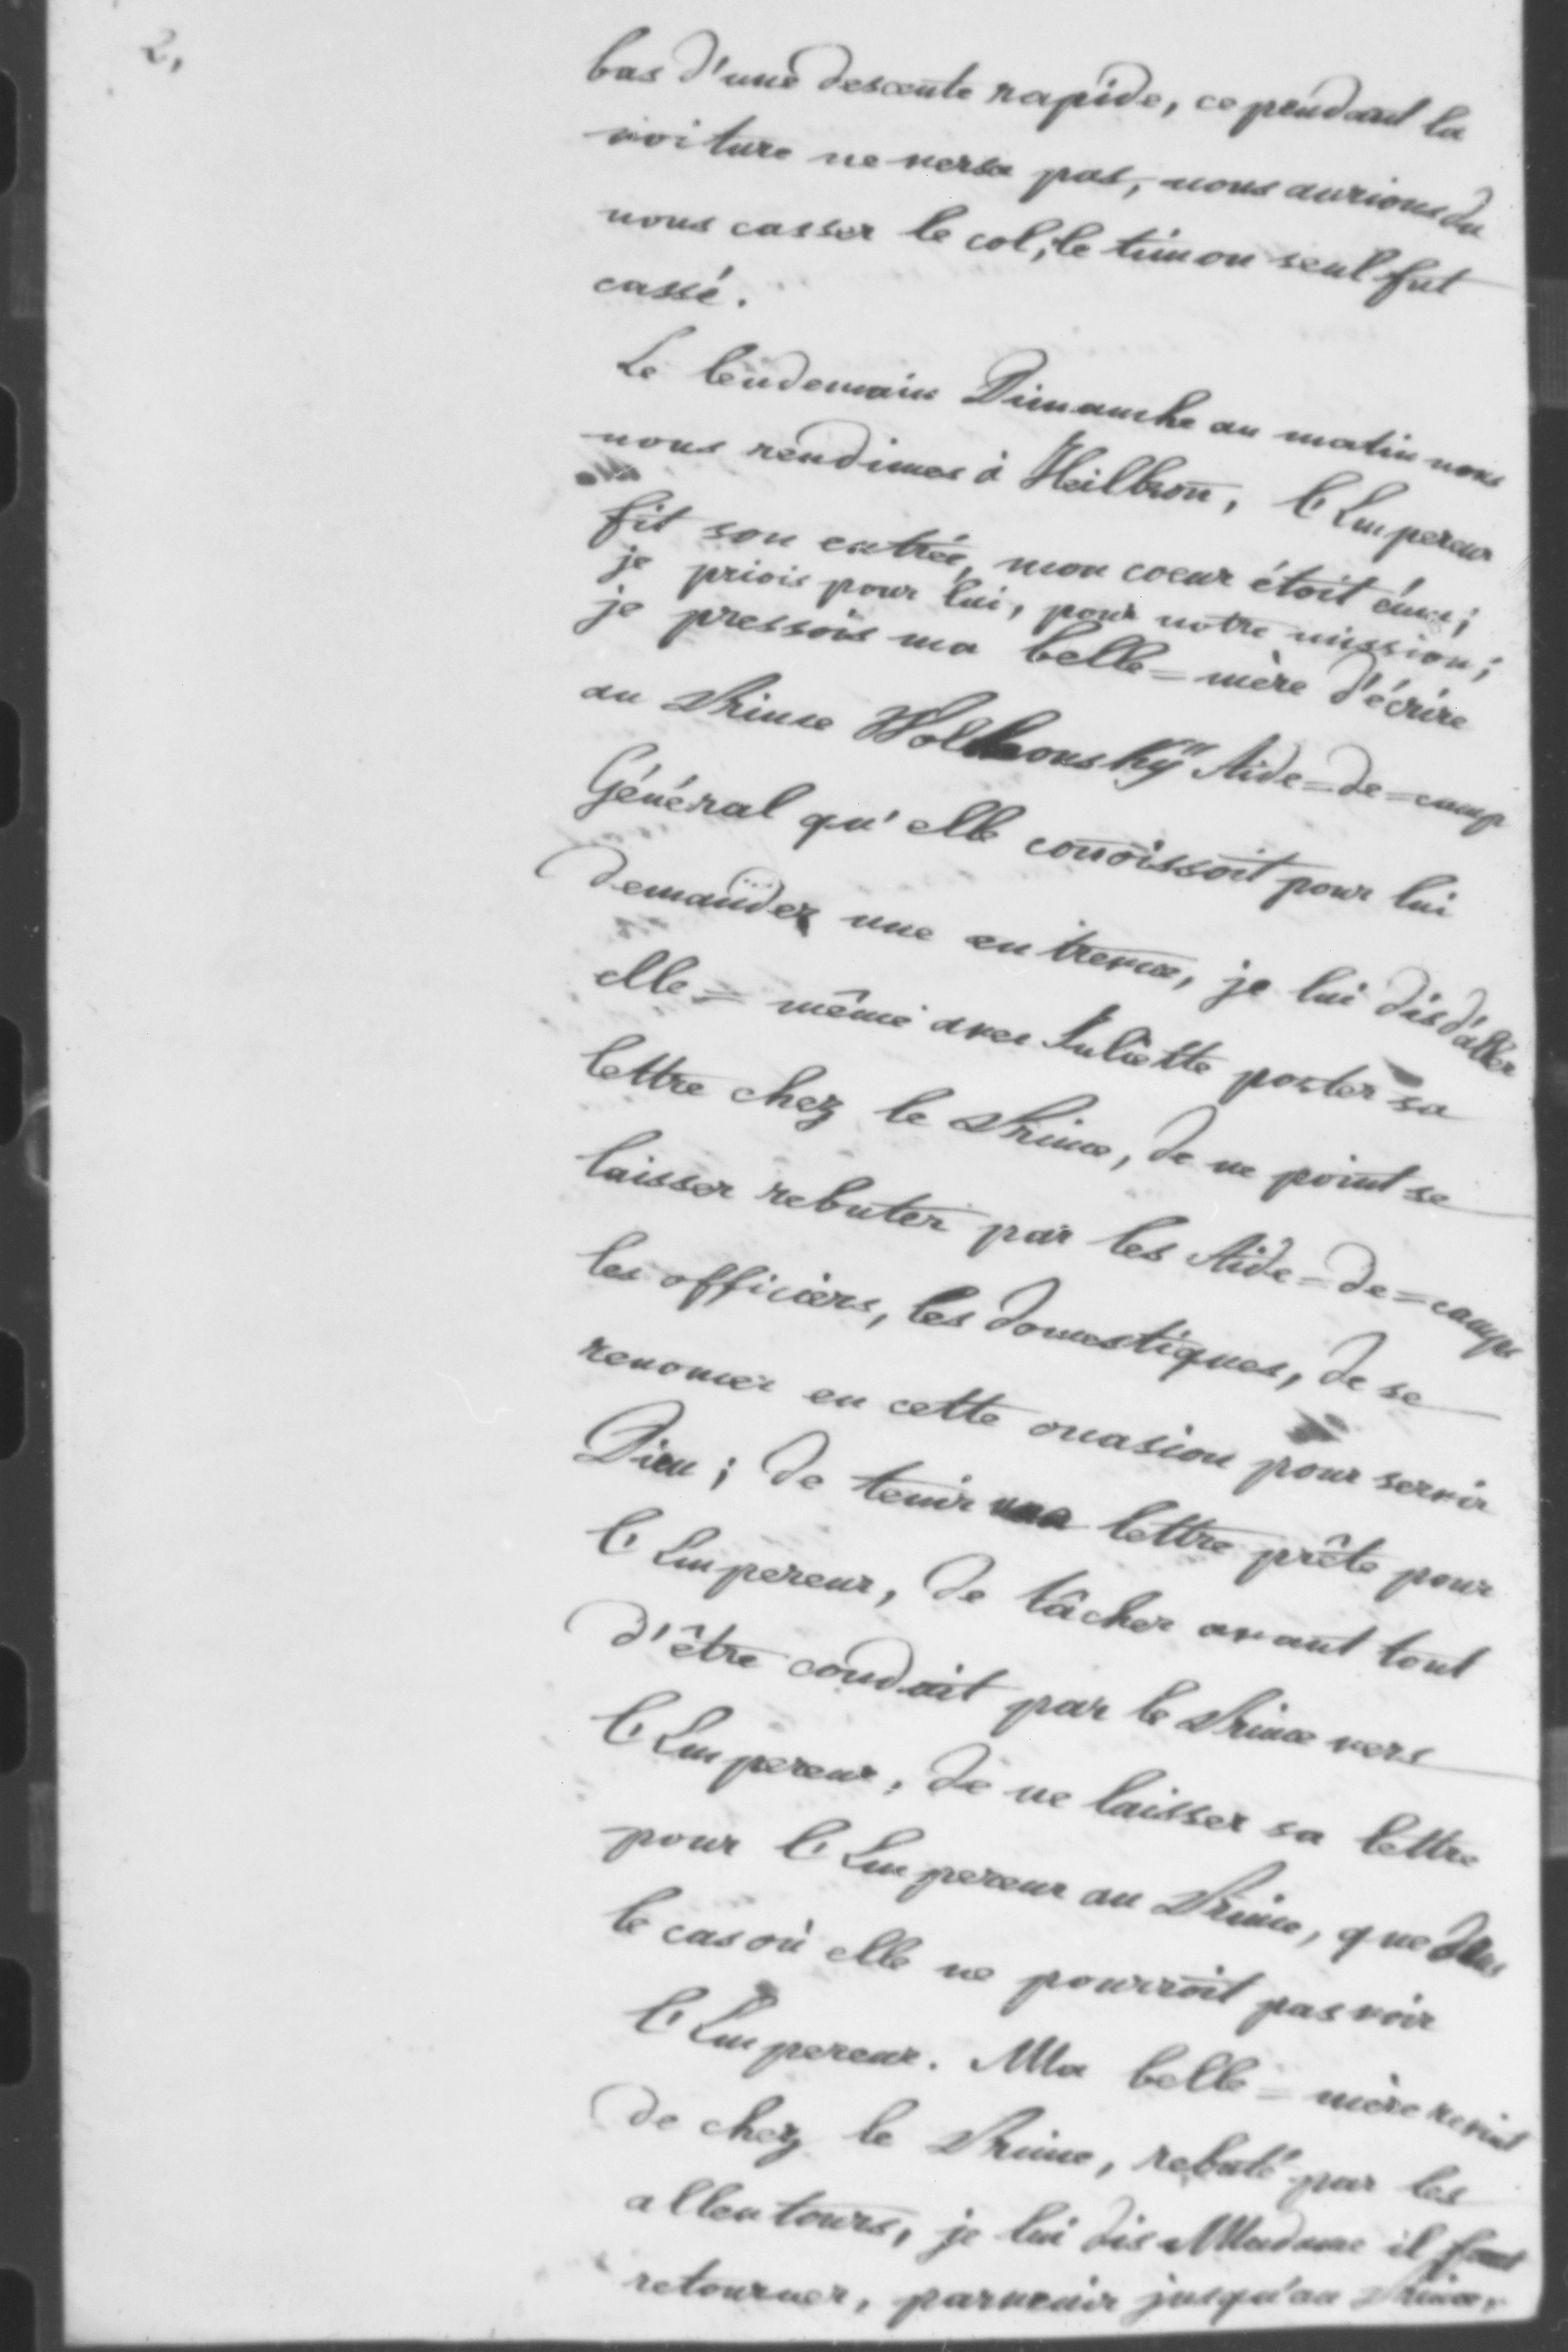 2,
bas d'une descente rapide, cependant la
voiture ne versa pas, nous aurions du
nous casser le col, le timon seul fut
cassé.
Le lendemain Dimanche au matin nous
nous rendimes à Heilbron, l'Empereur
fit son entrée, mon coeur étoit ému;
je priois pour lui, pour notre mission;
je pressois ma belle=mère d'écrire
au Prince Wolkonsky Aide=de=camp
Général qu'elle conoissoit pour lui
demander une entrevue, je lui dis d'aller
elle=même avec Juliette porter sa
lettre chez le Prince, de ne point se
laisser rebuter par les Aide=de=camps
les officiers, les domestiques, de se
renoncer en cette occasion pour servir
Dieu; de tenir une lettre prête pour
l'Empereur, de tâcher avant tout
d'être conduit par le Prince vers
l'Empereur, de ne laisser sa lettre
pour l'Empereur au Prince, que dans
le cas où elle ne pourroit pas voir
l'Empereur. Ma belle=mère revint
de chez le Prince, rebuté par les
allentours, je lui dis Madame il faut
retourner, parvenir jusqu'au Prince,